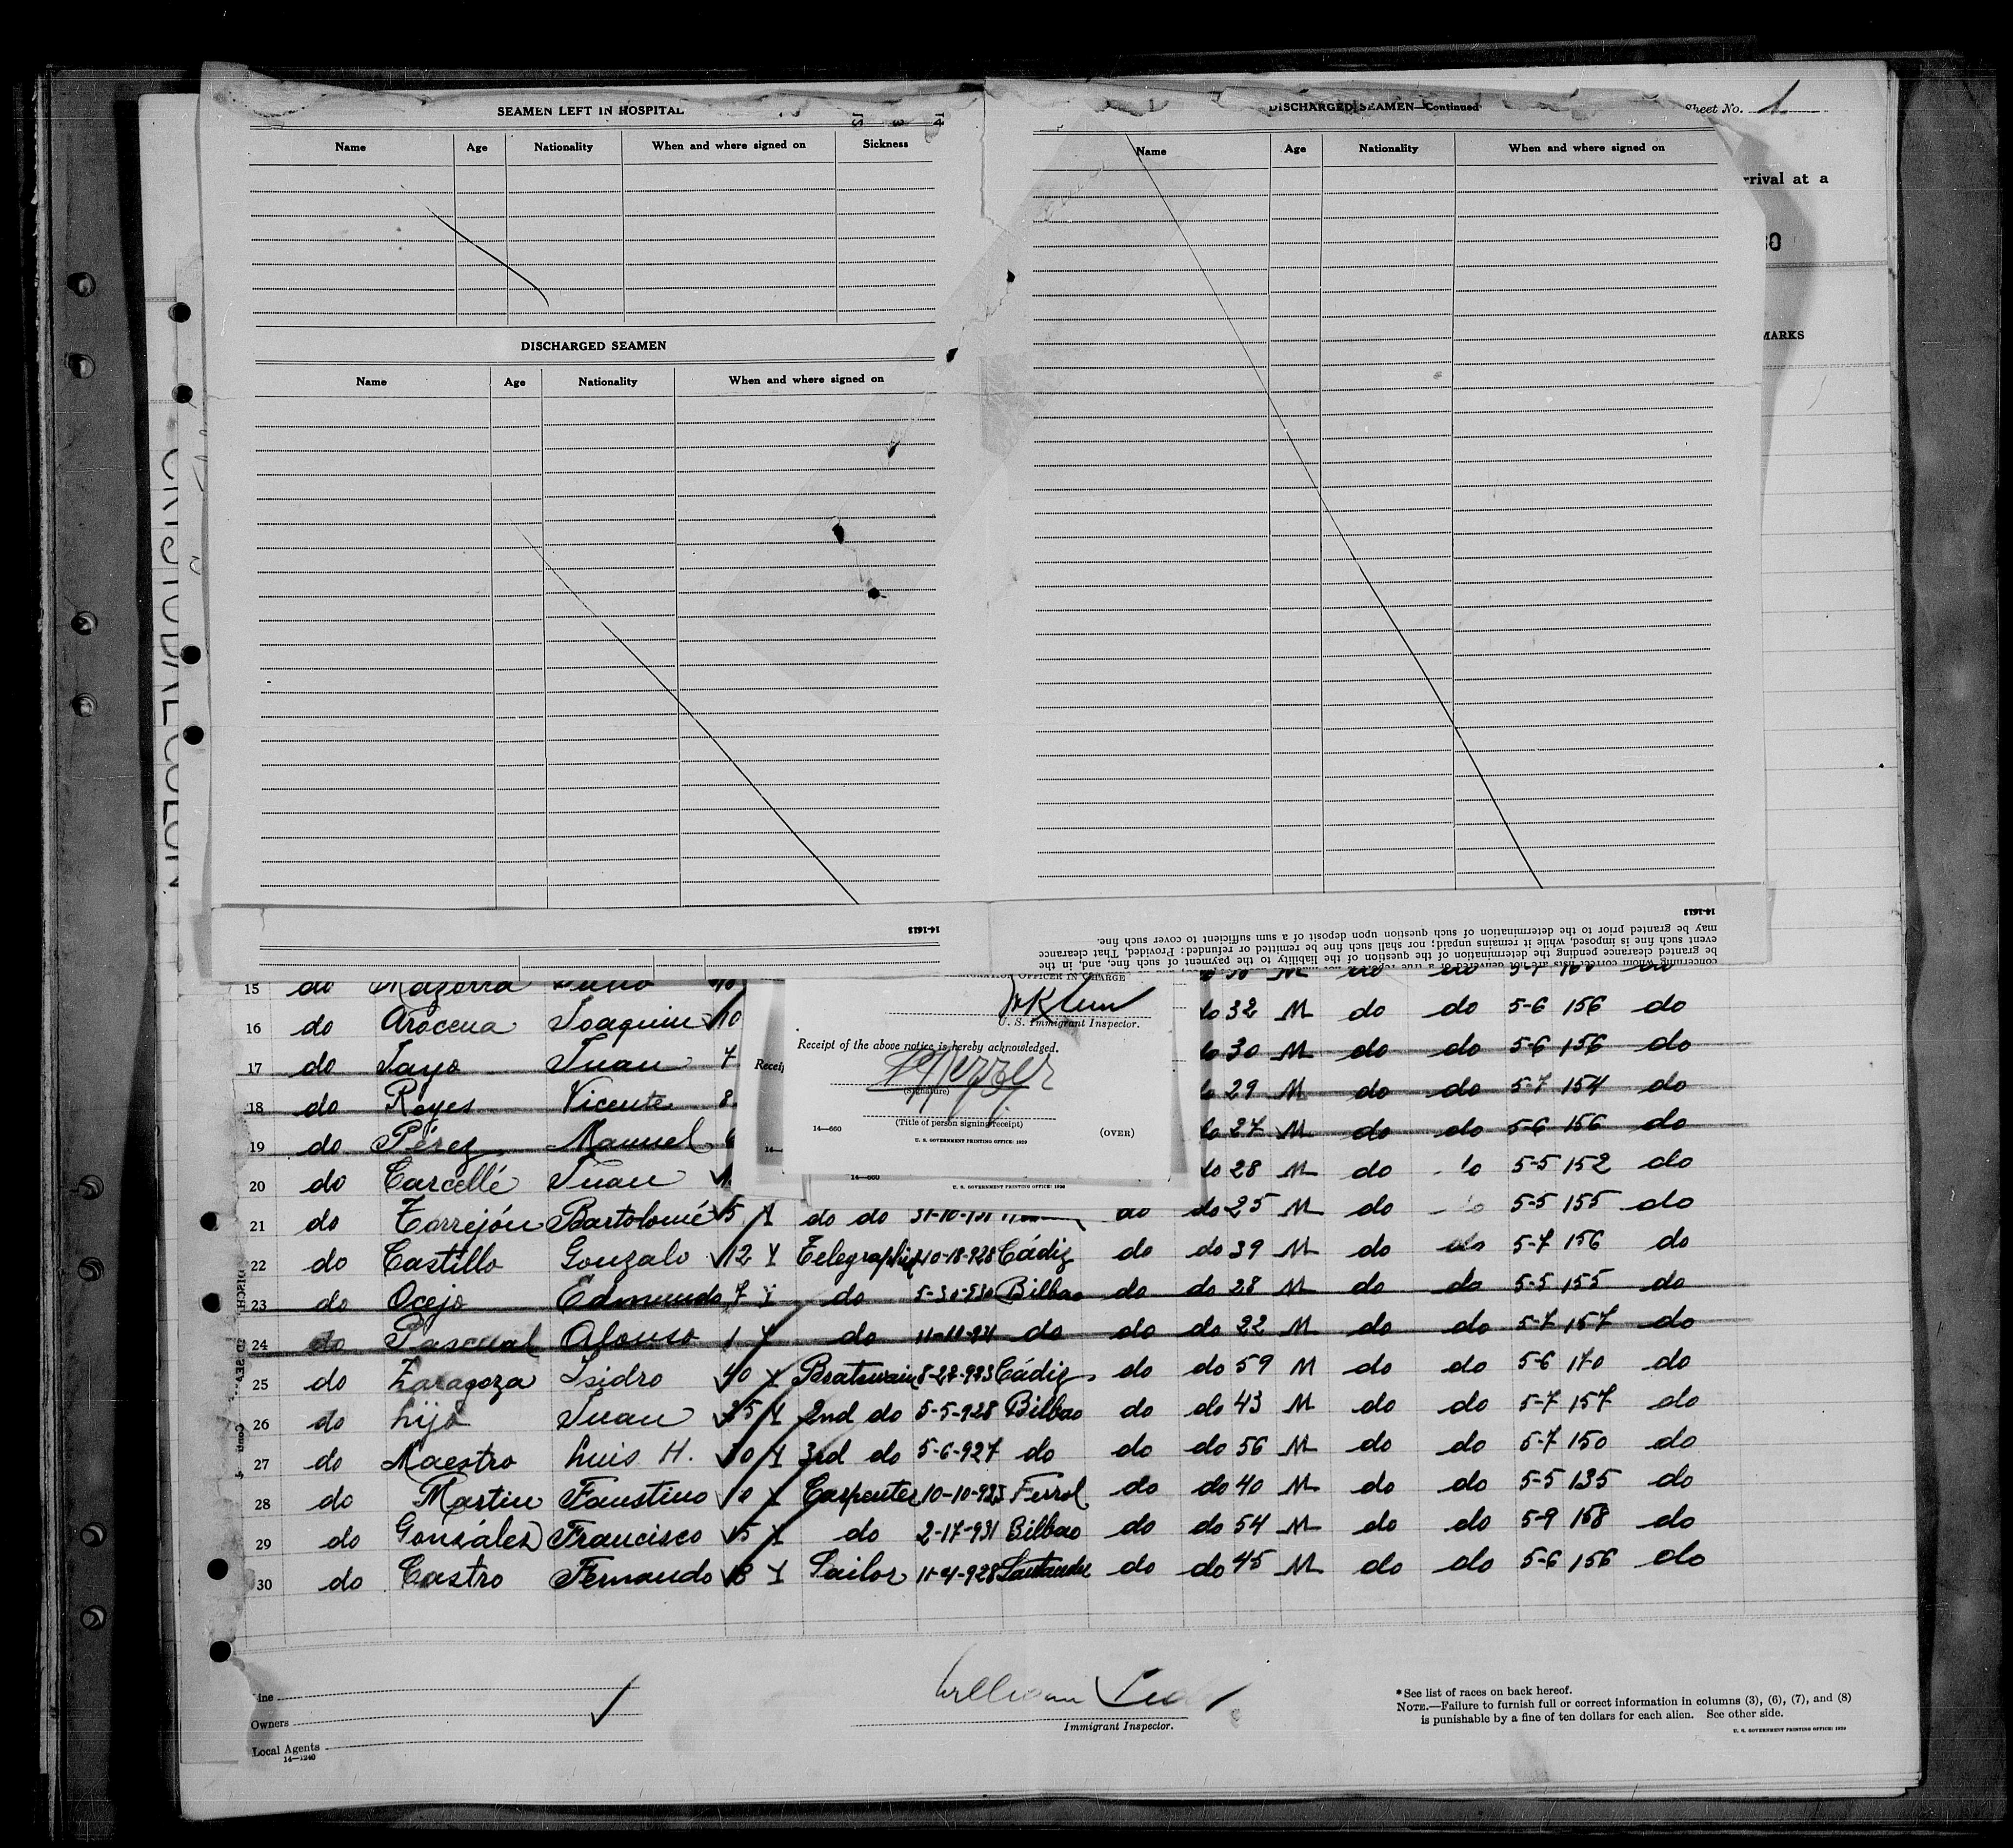 SEAMEN LEFT IN HOSPITAL
Name Age Nationality When and where signed on Sickness
DISCHARGED SEAMEN
Name Age Nationality When and where signed on
DISCHARGED SEAMEN—Continued
Sheet No. 1
Name Age Nationality When and where signed on
rrival at a
30
MARKS
CRISTOBAL COLON
14-1613
14-1613
may be granted prior to the determination of such question upon deposit of a sum sufficient to cover such fine.
event such fine is imposed, while it remains unpaid; nor shall such fine be remitted or refunded: Provided, That clearance
be granted clearance pending the determination of the question of the liability to the payment of such fine, and, in the
OFFICER IN CHARGE
U. S. Immigrant Inspector.
Receipt of the above notice is hereby acknowledged.
(Signature)
(Title of person signing receipt)
14—660 (OVER)
U. S. GOVERNMENT PRINTING OFFICE: 1929
Recei
14—660
U. S. GOVERNMENT PRINTING OFFICE: 1930
15 do Mazorra
16 do Arocena Joaquin 10 do 32 M do do 5-6 156 do
17 do Tayo Juan 7 do 30 M do do 5-6 156 do
18 do Reyes Vicente 8 do 29 M do do 5-7 154 do
19 do Pérez Manuel 6 do 27 M do do 5-6 156 do
20 do Carcellé Juan do 28 M do do 5-5 152 do
21 do Torrejón Bartolomé 5 Y do do 31-10-931 do do 25 M do do 5-5 155 do
22 do Castillo Gonzalo 12 Y 10-18-928 Cádiz do do 39 M do do 5-7 156 do
23 do Ocejo Edmundo 7 Y do 5-30-930 Bilbao do do 28 M do do 5-5 155 do
24 do Pascual Alonso 1 Y do 11-11-931 do do do 22 M do do 5-7 157 do
25 do Zaragoza Isidro 40 Y Boatswain 8-27-923 Cádiz do do 59 M do do 5-6 170 do
26 do Lijo Juan 25 Y 2nd do 5-5-928 Bilbao do do 43 M do do 5-7 157 do
27 do Maestro Luis H. 30 Y 3rd do 5-6-927 do do do 56 M do do 5-7 150 do
28 do Martin Faustino 10 Y Carpenter 10-10-925 Ferrol do do 40 M do do 5-5 135 do
29 do González Francisco 15 Y do 2-17-931 Bilbao do do 54 M do do 5-9 158 do
30 do Castro Fernando 18 Y Sailor 11-4-928 Santander do do 45 M do do 5-6 156 do
Line
Owners
Local Agents
14—1240
William
Immigrant Inspector.
* See list of races on back hereof.
NOTE.—Failure to furnish full or correct information in columns (3), (6), (7), and (8)
is punishable by a fine of ten dollars for each alien. See other side.
U. S. GOVERNMENT PRINTING OFFICE: 1929